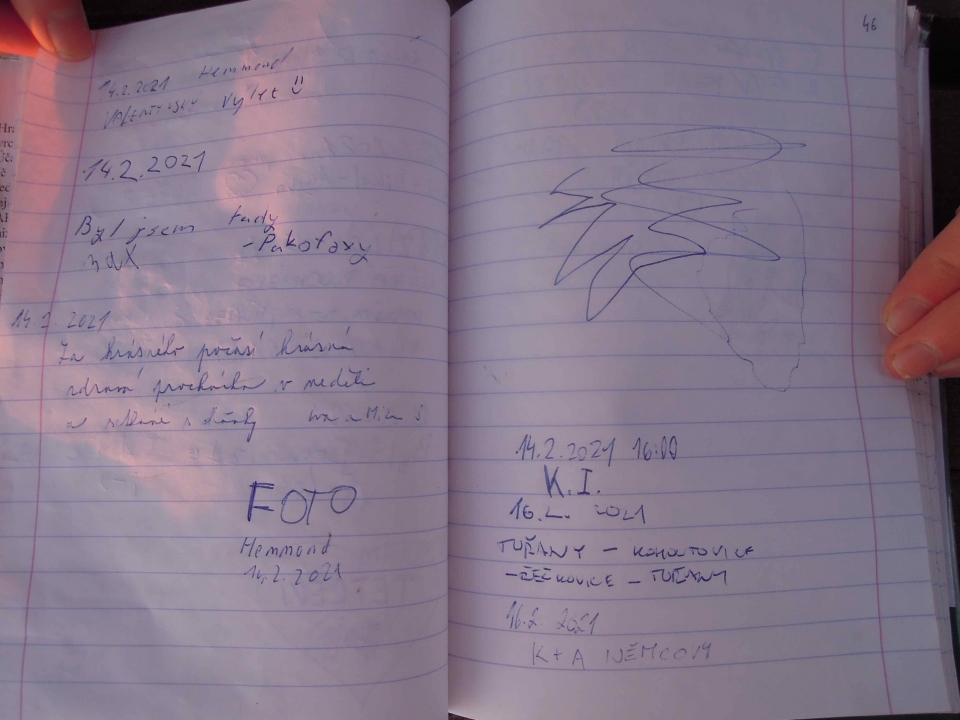 14.2.2021 Hemmond
VALENTÝNSKÝ Výlet
14.2.2021
Byl jsem tady
- Pakoťaxy
14.2. 2021
Za krásného počasí krásná
zdravá procházka v neděli
a setkání s
FOTO
Hemmond
14.2.2021
46
14.2.2021 16:00
K.I.
16.2. 2021
TUŘANY - KOHOUTOVICE
- ŘEČKOVICE - TUŘANY
16.2. 2021
K+A NĚMCOVI